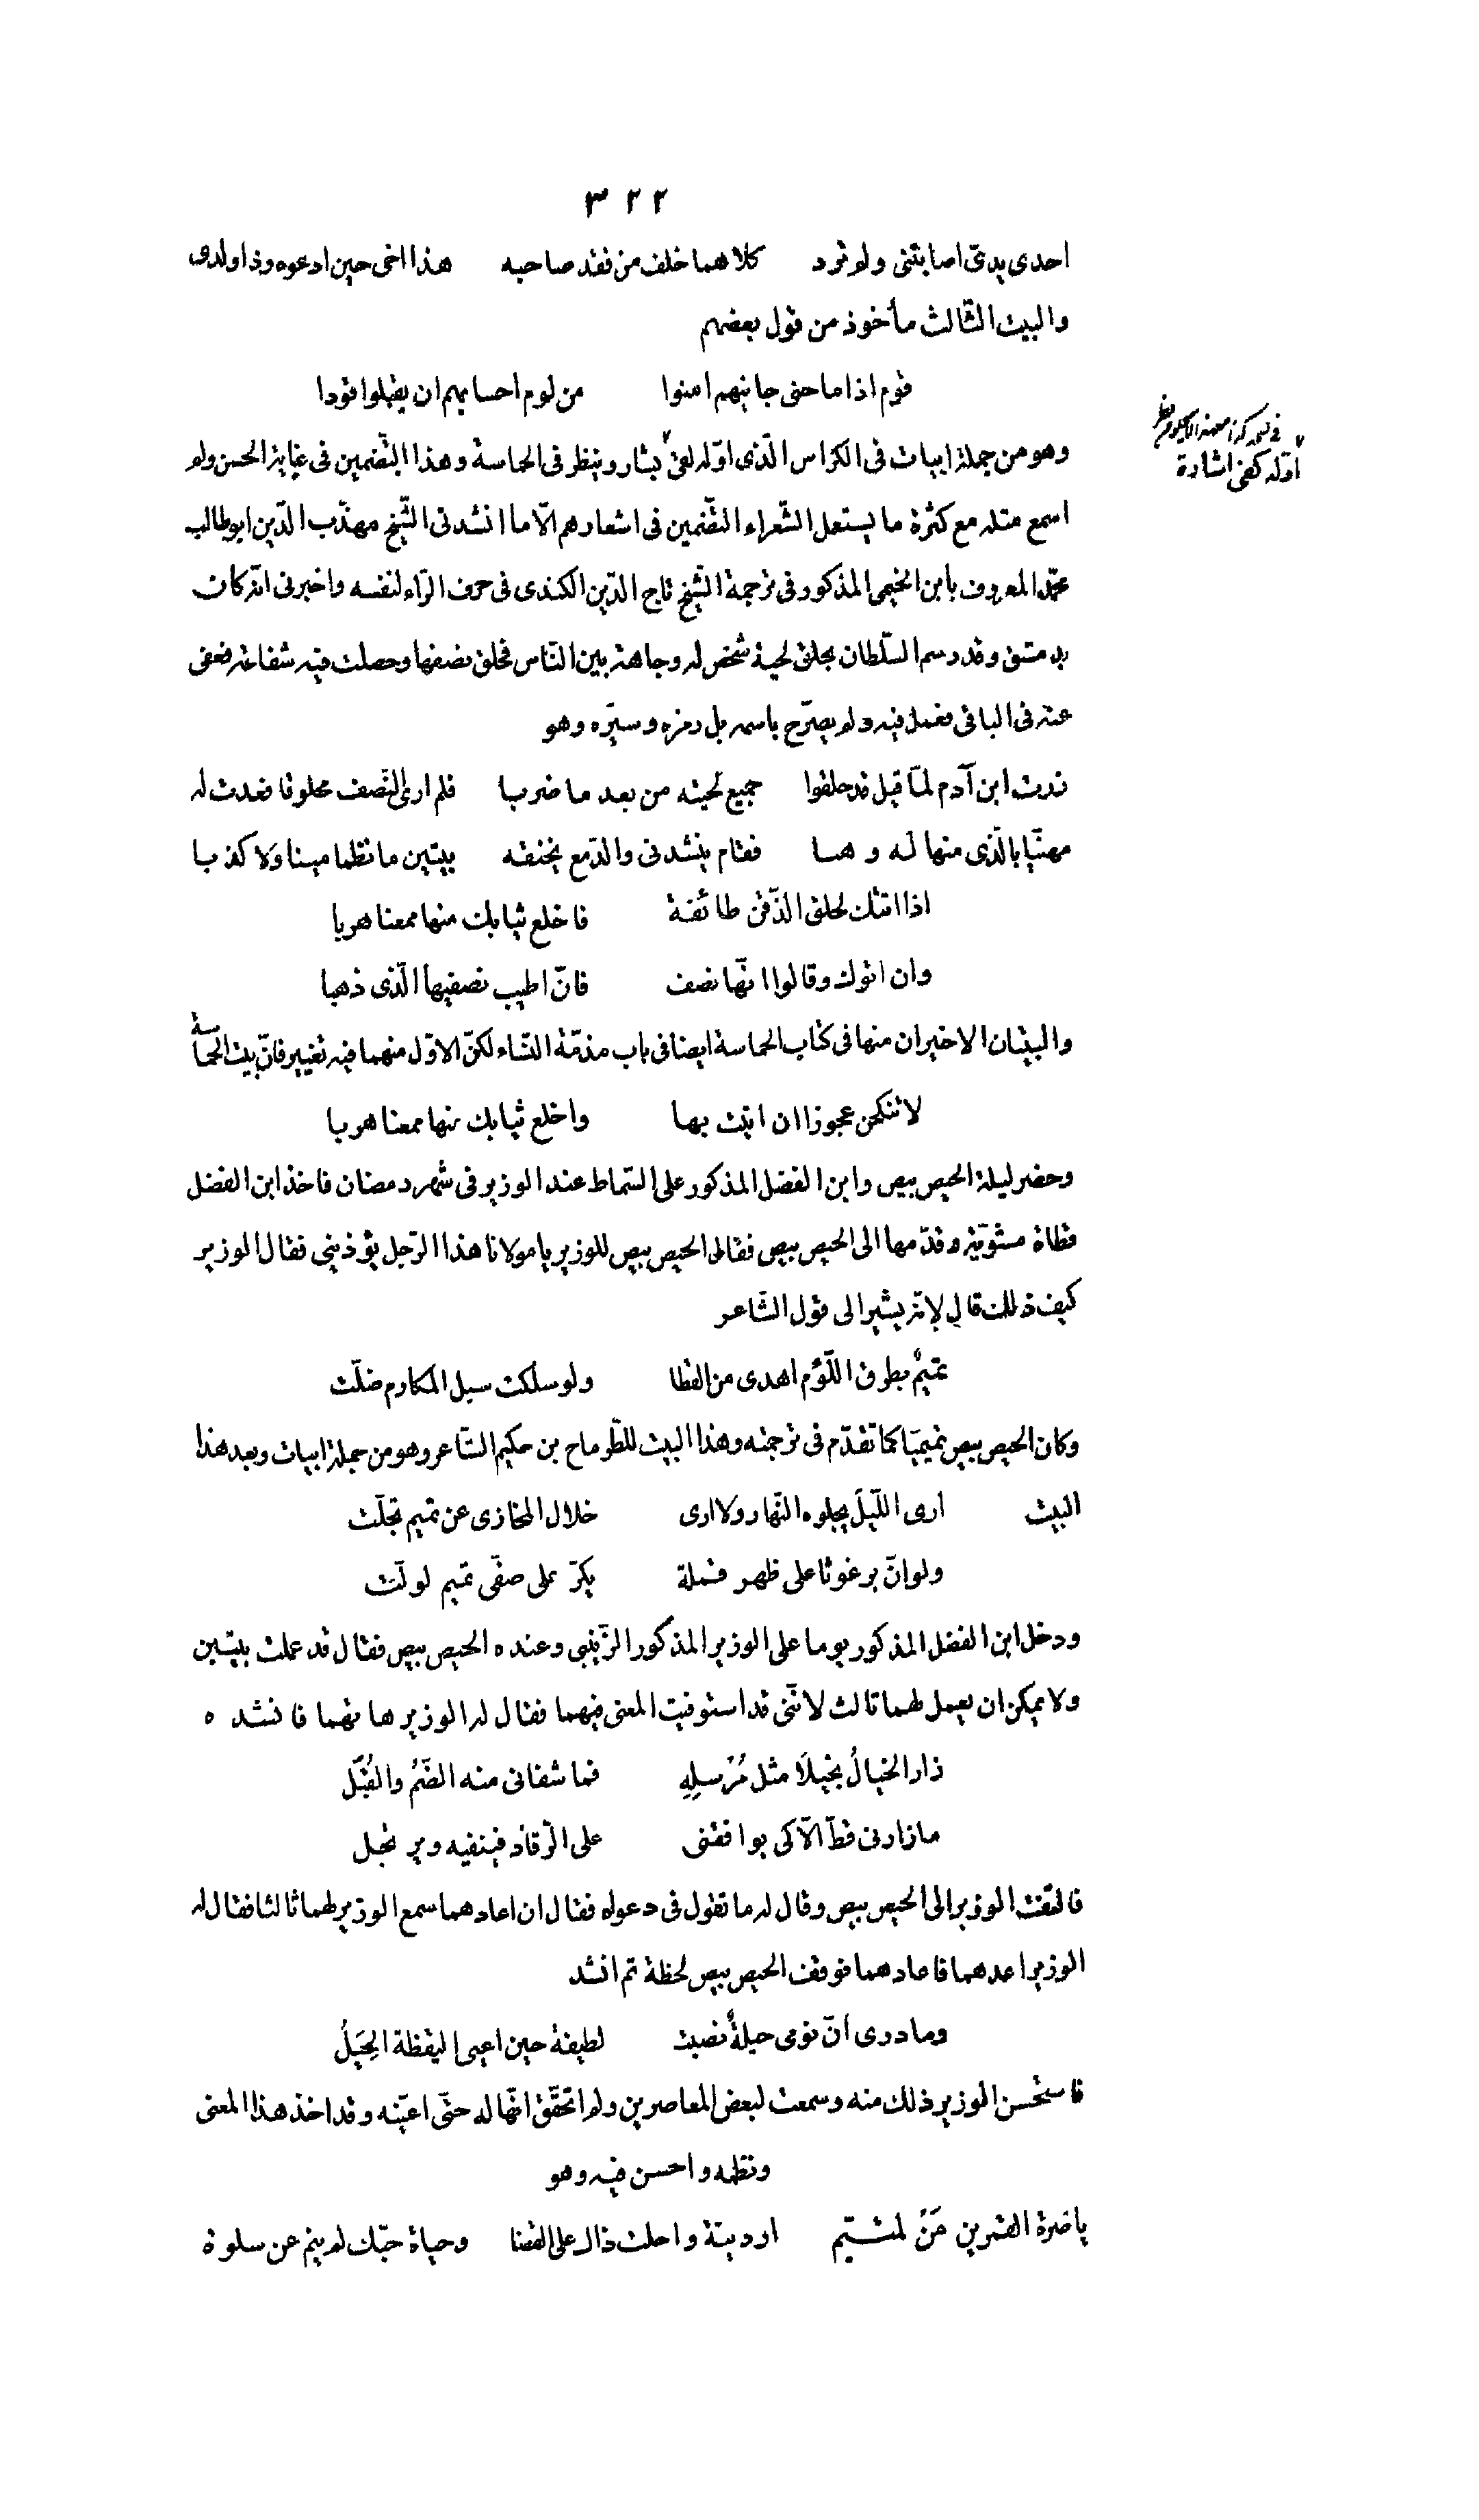 ٣٢٢
احدى يدىّ اصابتنى ولم ترد كلاهما خلف من فقد صاحبه هذا اخى حين ادعوه وذا ولدى
والبيت الثّالث مأخوذ من قول بعضهم
قوم اذا ما جنى جانيهم امنوا من لوم احسابهم ان يقتلوا قودا
وهو من جملة ابيات فى الكرّاس الّذى اوّله لعىّ بشار وينظر فى الحماسة وهذا التّضمين فى غاية الحسن ولم
اسمع مثله مع كثرة ما يستعمل الشّعراء التّضمين فى اشعارهم الّا ما انشدنى الشّيخ مهذّب الدّين ابو طالب
محمّد المعروف بابن الخيمى المذكور فى ترجمة الشّيخ تاج الدّين الكندى فى حرف الزّاء لنفسه واخبرنى انّه كان
بدمشق وقد رسم السّلطان بحلق لحية شخص له وجاهة بين النّاس فحلق نصفها وحصلت فيه شفاعة فعفى
عنه فى الباقى فعمل فيه ولم يصرّح باسمه بل رمزه وستره وهو
زرت ابن آدم لمّا قيل قد حلقوا جميع لحيته من بعد ما ضربا فلم ار النّصف محلوقا فعدت له
مهنّيا بالّذى منها له وهبا فقام ينشدنى والدّمع يخنقه بيتين ما نظما مينا ولا كذبا
اذا اتتك لحلق الذّقن طائفة فاخلع ثيابك منها ممعنا هربا
وان اتوك وقالوا انّها نصف فانّ اطيب نصفيها الّذى ذهبا
والبيتان الاخيران منها فى كتاب الحماسة ايضا فى باب مذمّة النّساء لكنّ الاوّل منهما فيه تغيير فانّ بيت الحماسة
لا تنكحن عجوزا ان اتيت بها واخلع ثيابك منها ممعنا هربا
وحضر ليلة الحيص بيص وابن الفضل المذكور على السّماط عند الوزير فى شهر رمضان فاخذ ابن الفضل
قطاة مشويّة وقدّمها الى الحيص بيص فقال الحيص بيص للوزير يا مولانا هذا الرّجل يؤذينى فقال الوزير
كيف ذلك قال لانّه يشير الى قول الشّاعر
تميمٌ بطرق اللّؤم اهدى من القطا ولو سلكت سبل المكارم ضلّت
وكان الحيص بيص تميميّا كما تقدّم فى ترجمته وهذا البيت للطّرماح بن حكيم الشّاعر وهو من جملة ابيات وبعد هذا
البيت ارى اللّيلَ يجلوه النّهار ولا ارى خلال المخازى عن تميم تجلّت
ولو انّ برغوثا على ظهر قملة يكرّ على صفّى تميم لولّت
ودخل ابن الفضل المذكور يوما على الوزير المذكور الزّينبى وعنده الحيص بيص فقال قد عملت بيتين
ولا يمكن ان يعمل لهما ثالث لانّنى قد استوفيت المعنى فيهما فقال له الوزير هاتهما فانشده
زار الخيالُ بخيلًا مثل مُرْسِلِهِ فما شفانى منه الضّمُ والقُبَلُ
ما زارنى قطّ الّا كى يوافقنى على الرّقاد فينفيه ويرتحل
فالتفت الوزير الى الحيص بيص وقال له ما تقول فى دعواه فقال ان اعادهما سمع الوزير لهما ثالثا فقال له
الوزير اعدهما فاعادهما فوقف الحيص بيص لحظة ثم انشد
وما درى انّ نومى حيلةٌ نصبت لطيفة حين اعيى اليقظة الحِيَلُ
فاستحسن الوزير ذلك منه وسمعت لبعض المعاصرين ولم اتحقّق انّها له حتّى اعيّنه وقد اخذ هذا المعنى
ونظمه واحسن فيه وهو
يا ضرة القمرين مَنْ لمتيّم ارديته واحلت ذاك على القضا وحياة حبّك لم ينم عن سلوة
اوّله كفى اشارة